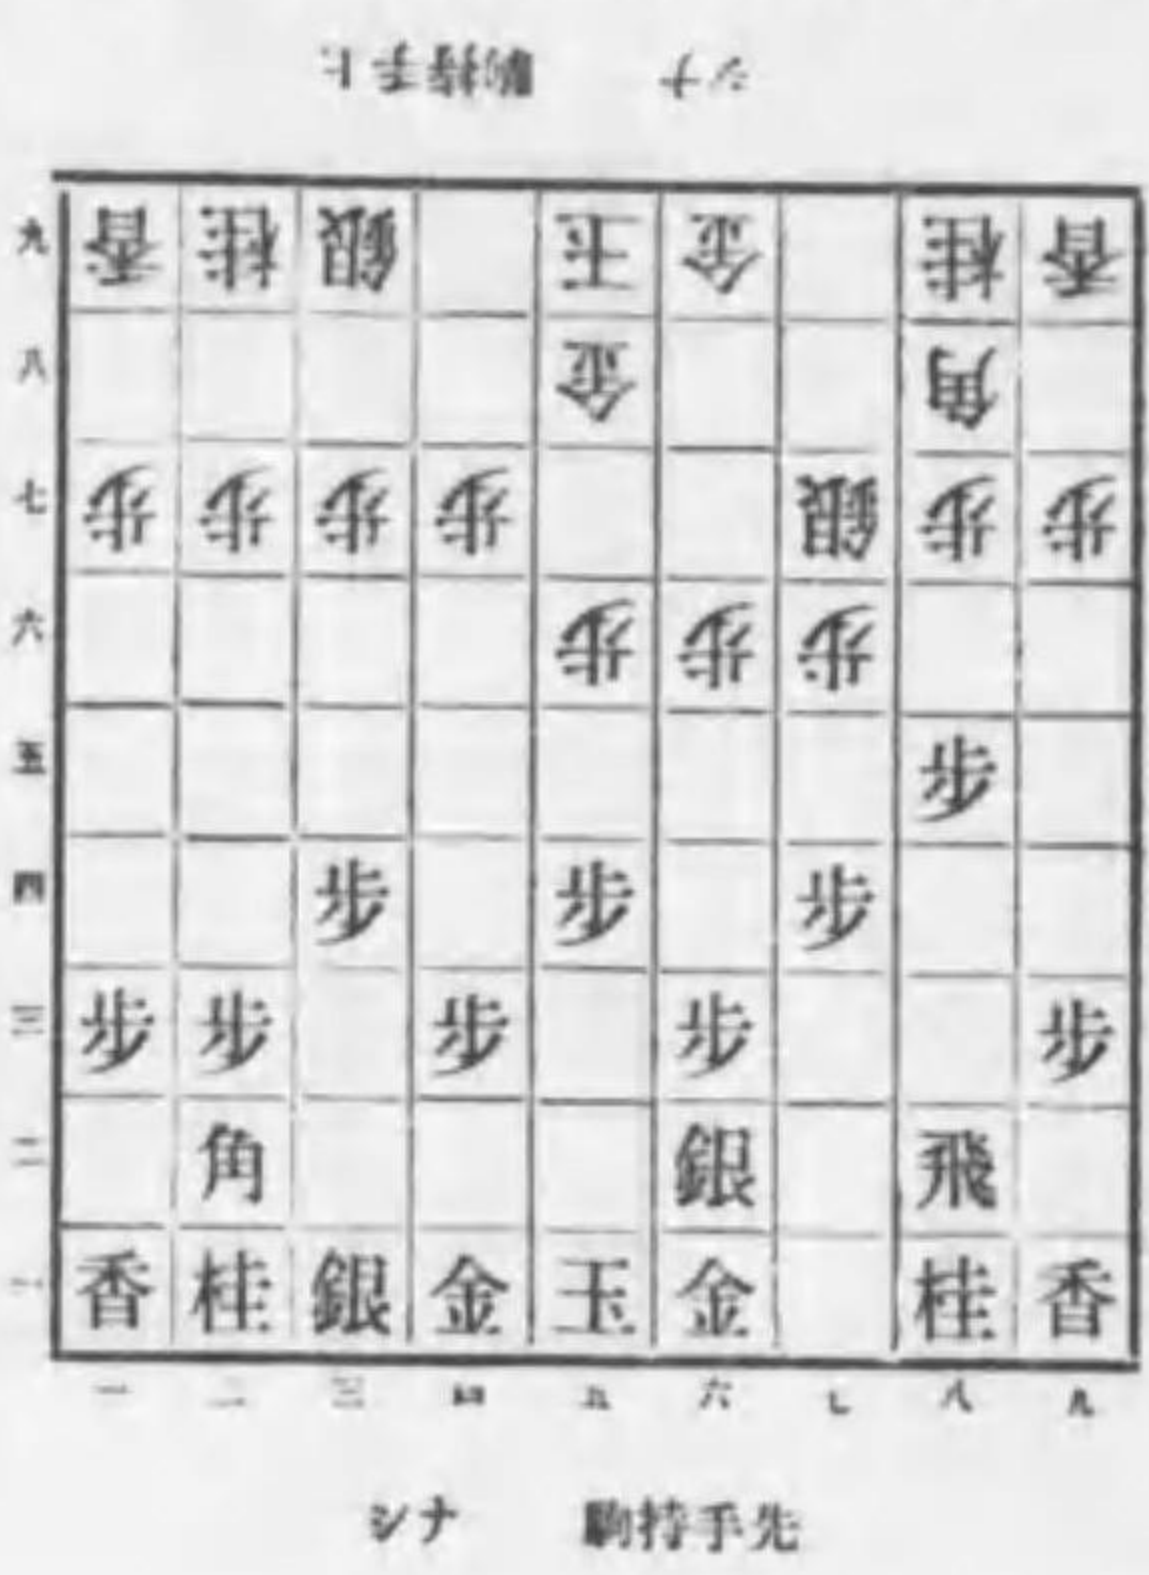 上手持駒 ナシ
九 香 桂 銀 玉 金 桂 香
八 金 角
七 歩 歩 歩 歩 銀 歩 歩
六 歩 歩 歩
五 歩
四 歩 歩 歩
三 歩 歩 歩 歩 歩
二 角 銀 飛
一 香 桂 銀 金 玉 金 桂 香
一 二 三 四 五 六 七 八 九
先手持駒 ナシ